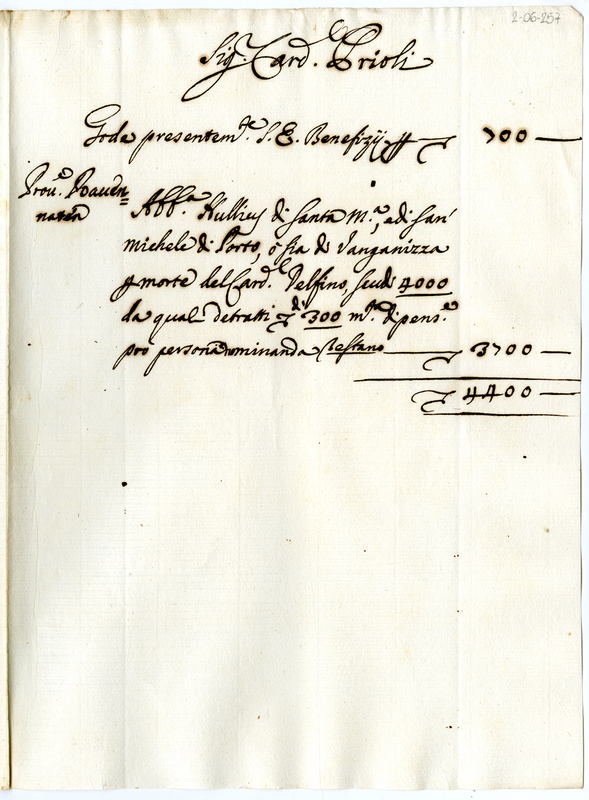 2-06-257
Sig.r Card.l Prioli
Gode presentem.te S. E. Benefizij p ∇ 700
Prou.e Rauen=
naten
Abb.a Nullius di Santa M.a, e di San
Michele di Porto, ò sia di Vanganizza
p morte del Card.l Delfino, scudi 4000
da quali detratti ∇di 300 m.ta di pens.e
pro persona nominanda Restano ∇ 3700
∇ 4400